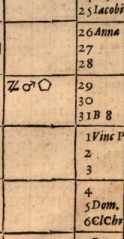 25 Iacobi
26 Anna
27
28
♃ ♂ ⬠ 29
30
31 B 8
1 Vinc P
2
3
4
5 Dom.
6 ClChr